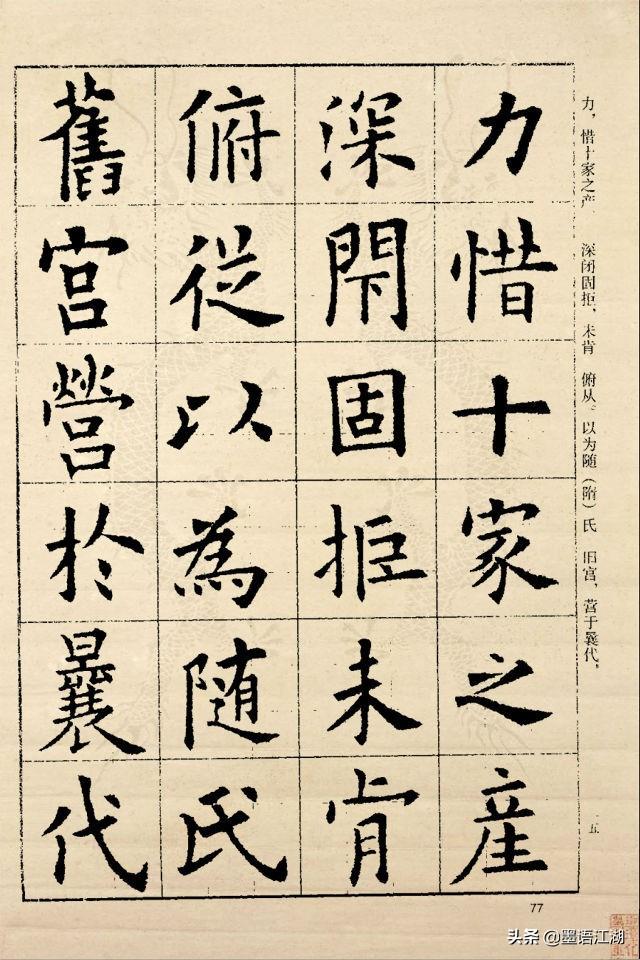 力惜十家之產
深閇固拒未肯
俯從以為随氏
舊宮營於曩代
力，惜十家之产 深闭固拒，未肯 俯从。以为随（隋）氏 旧宫，营于曩代，
一五
77
头条 @墨语江湖